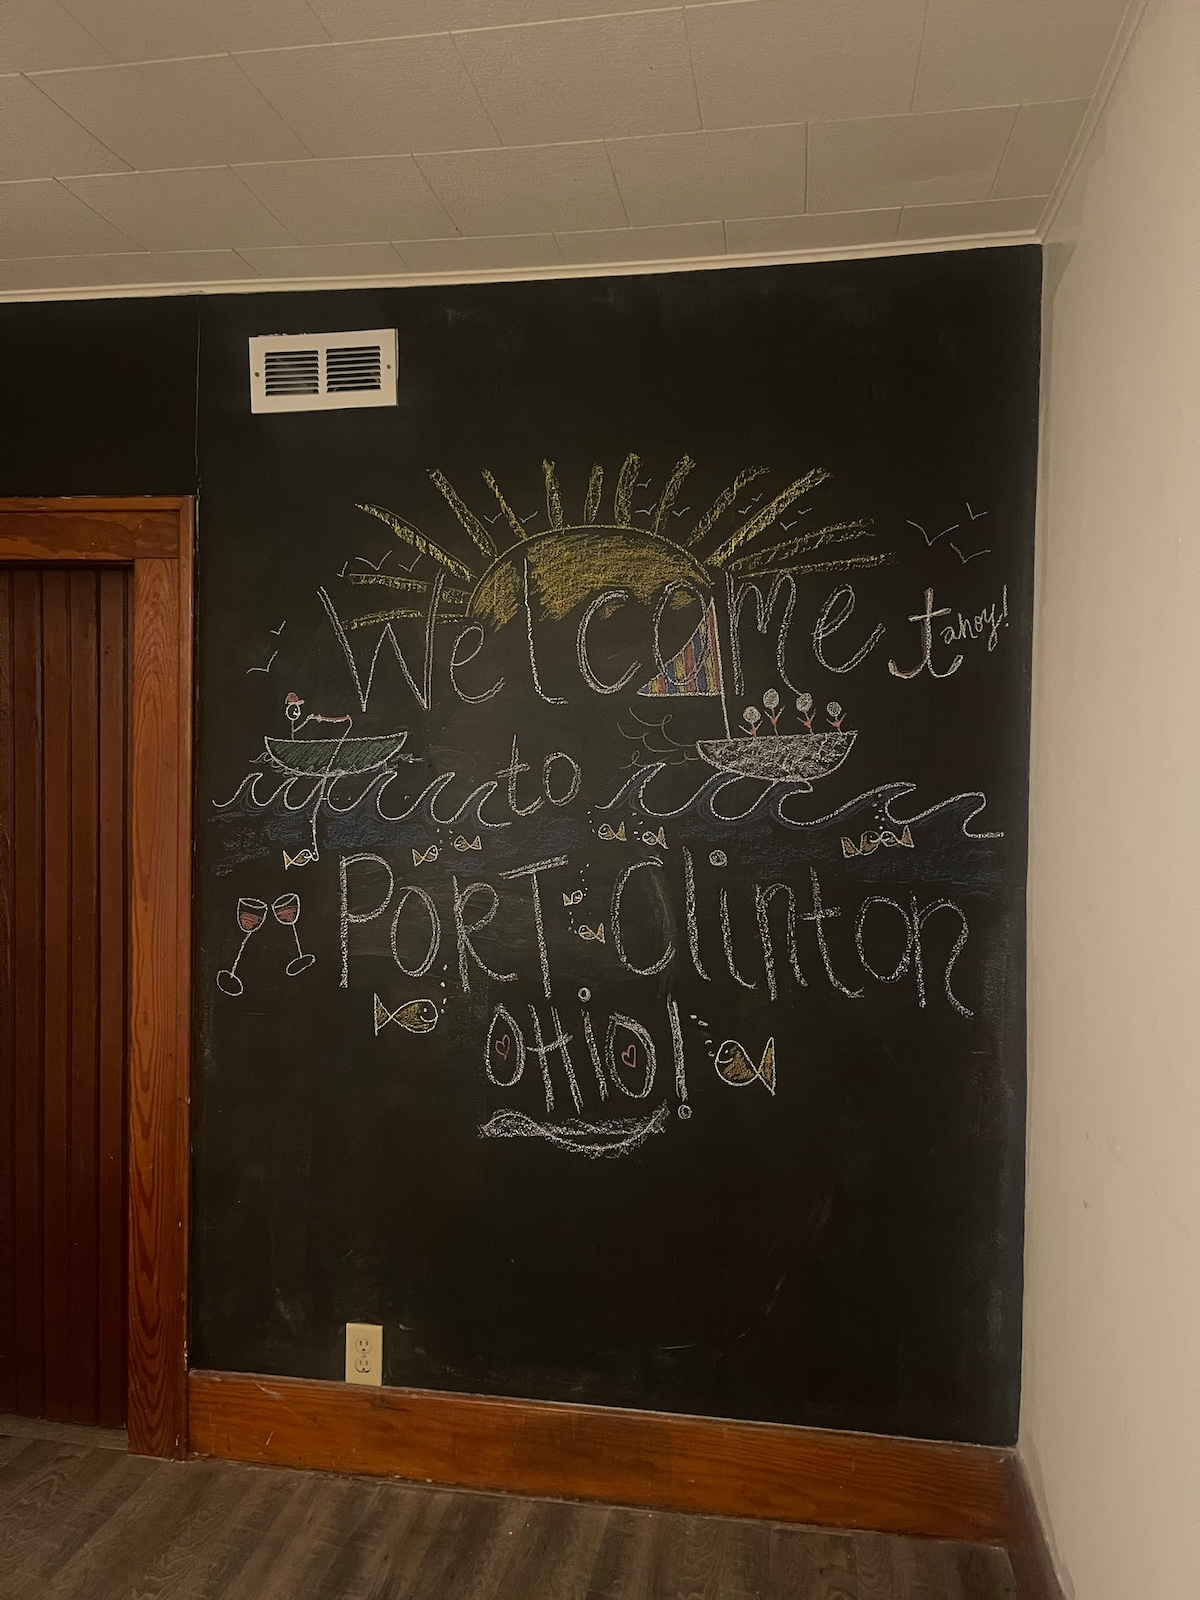 Welcome
ahoy!
to
PORT Clinton
OHIO!